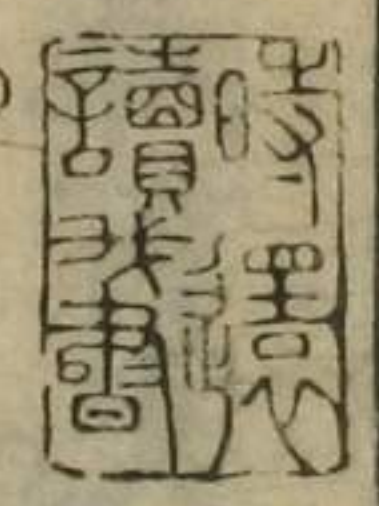 時還
讀我書